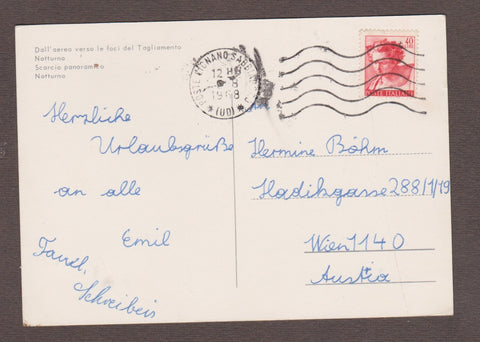 Dall'aereo verso le foci del Tagliamento
Notturno
Scorcio panoramico
Notturno
POSTE LIGNANO SABB
12 H
8
1968
(UD)
40
POSTE ITALIANE
Herzliche
Urlaubsgrüße
an alle
Emil
Faml.
Schreibeis
Hermine Böhm
Hadikgasse 288/1/19
Wien 1140
Austria